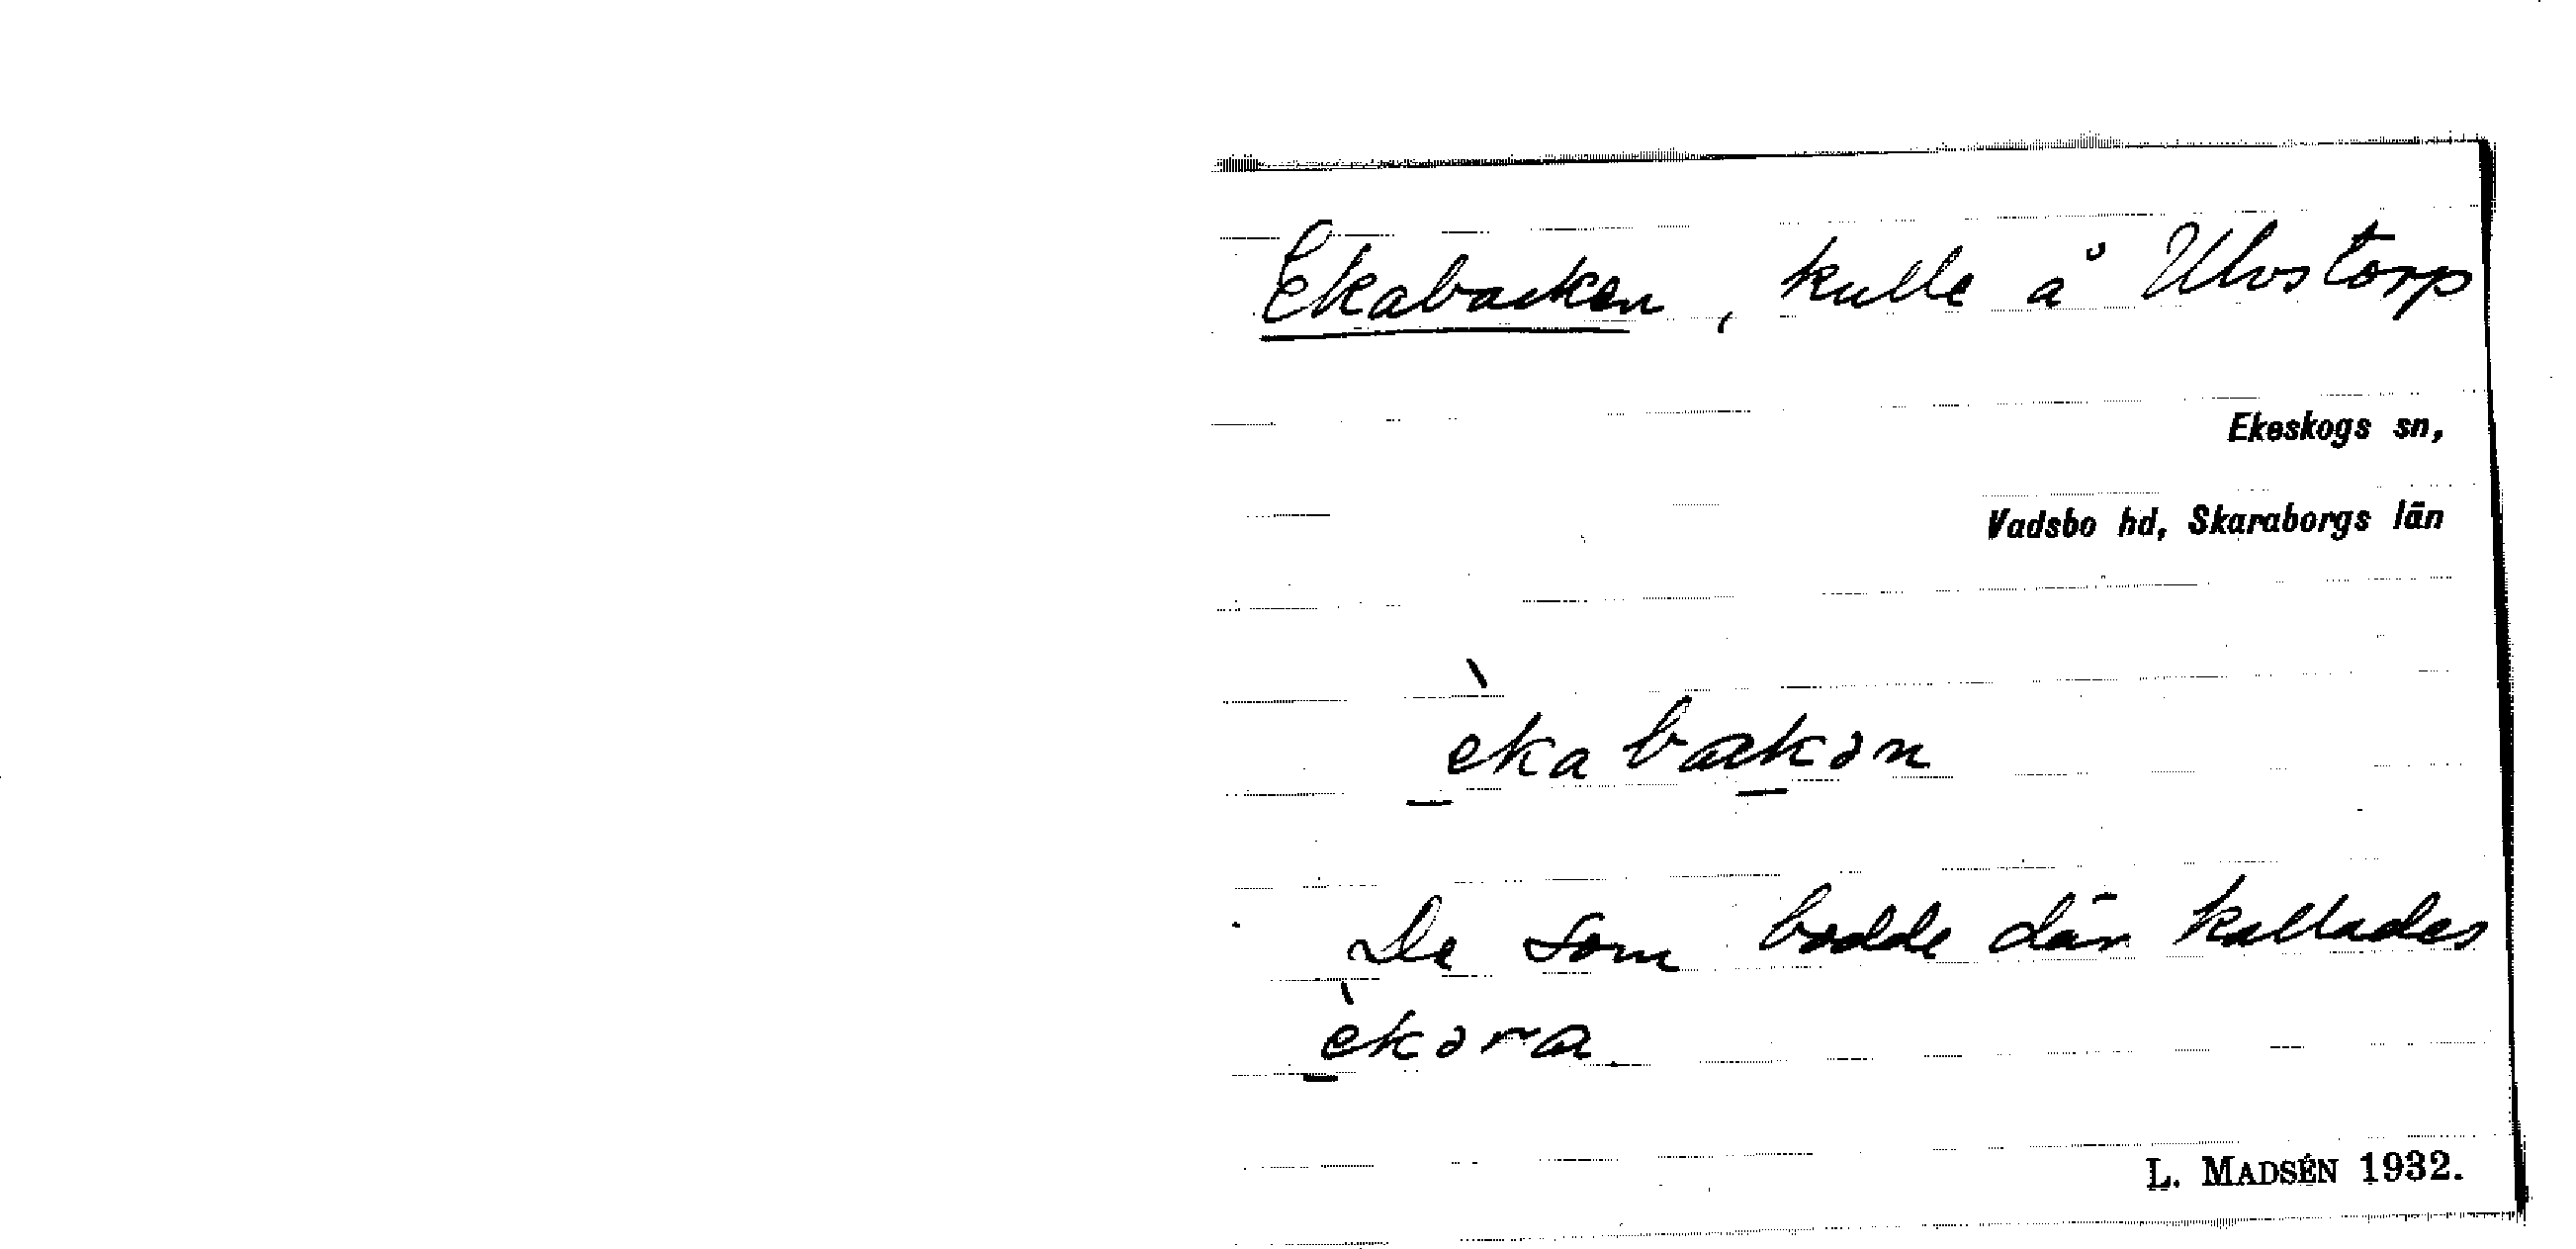 Ekabacken, kulle å Ulvstorp
Ekeskogs sn,
Vadsbo hd, Skaraborgs län
èkabackən
De som bodde där kallades
èkəra
L. MADSÉN 1932.